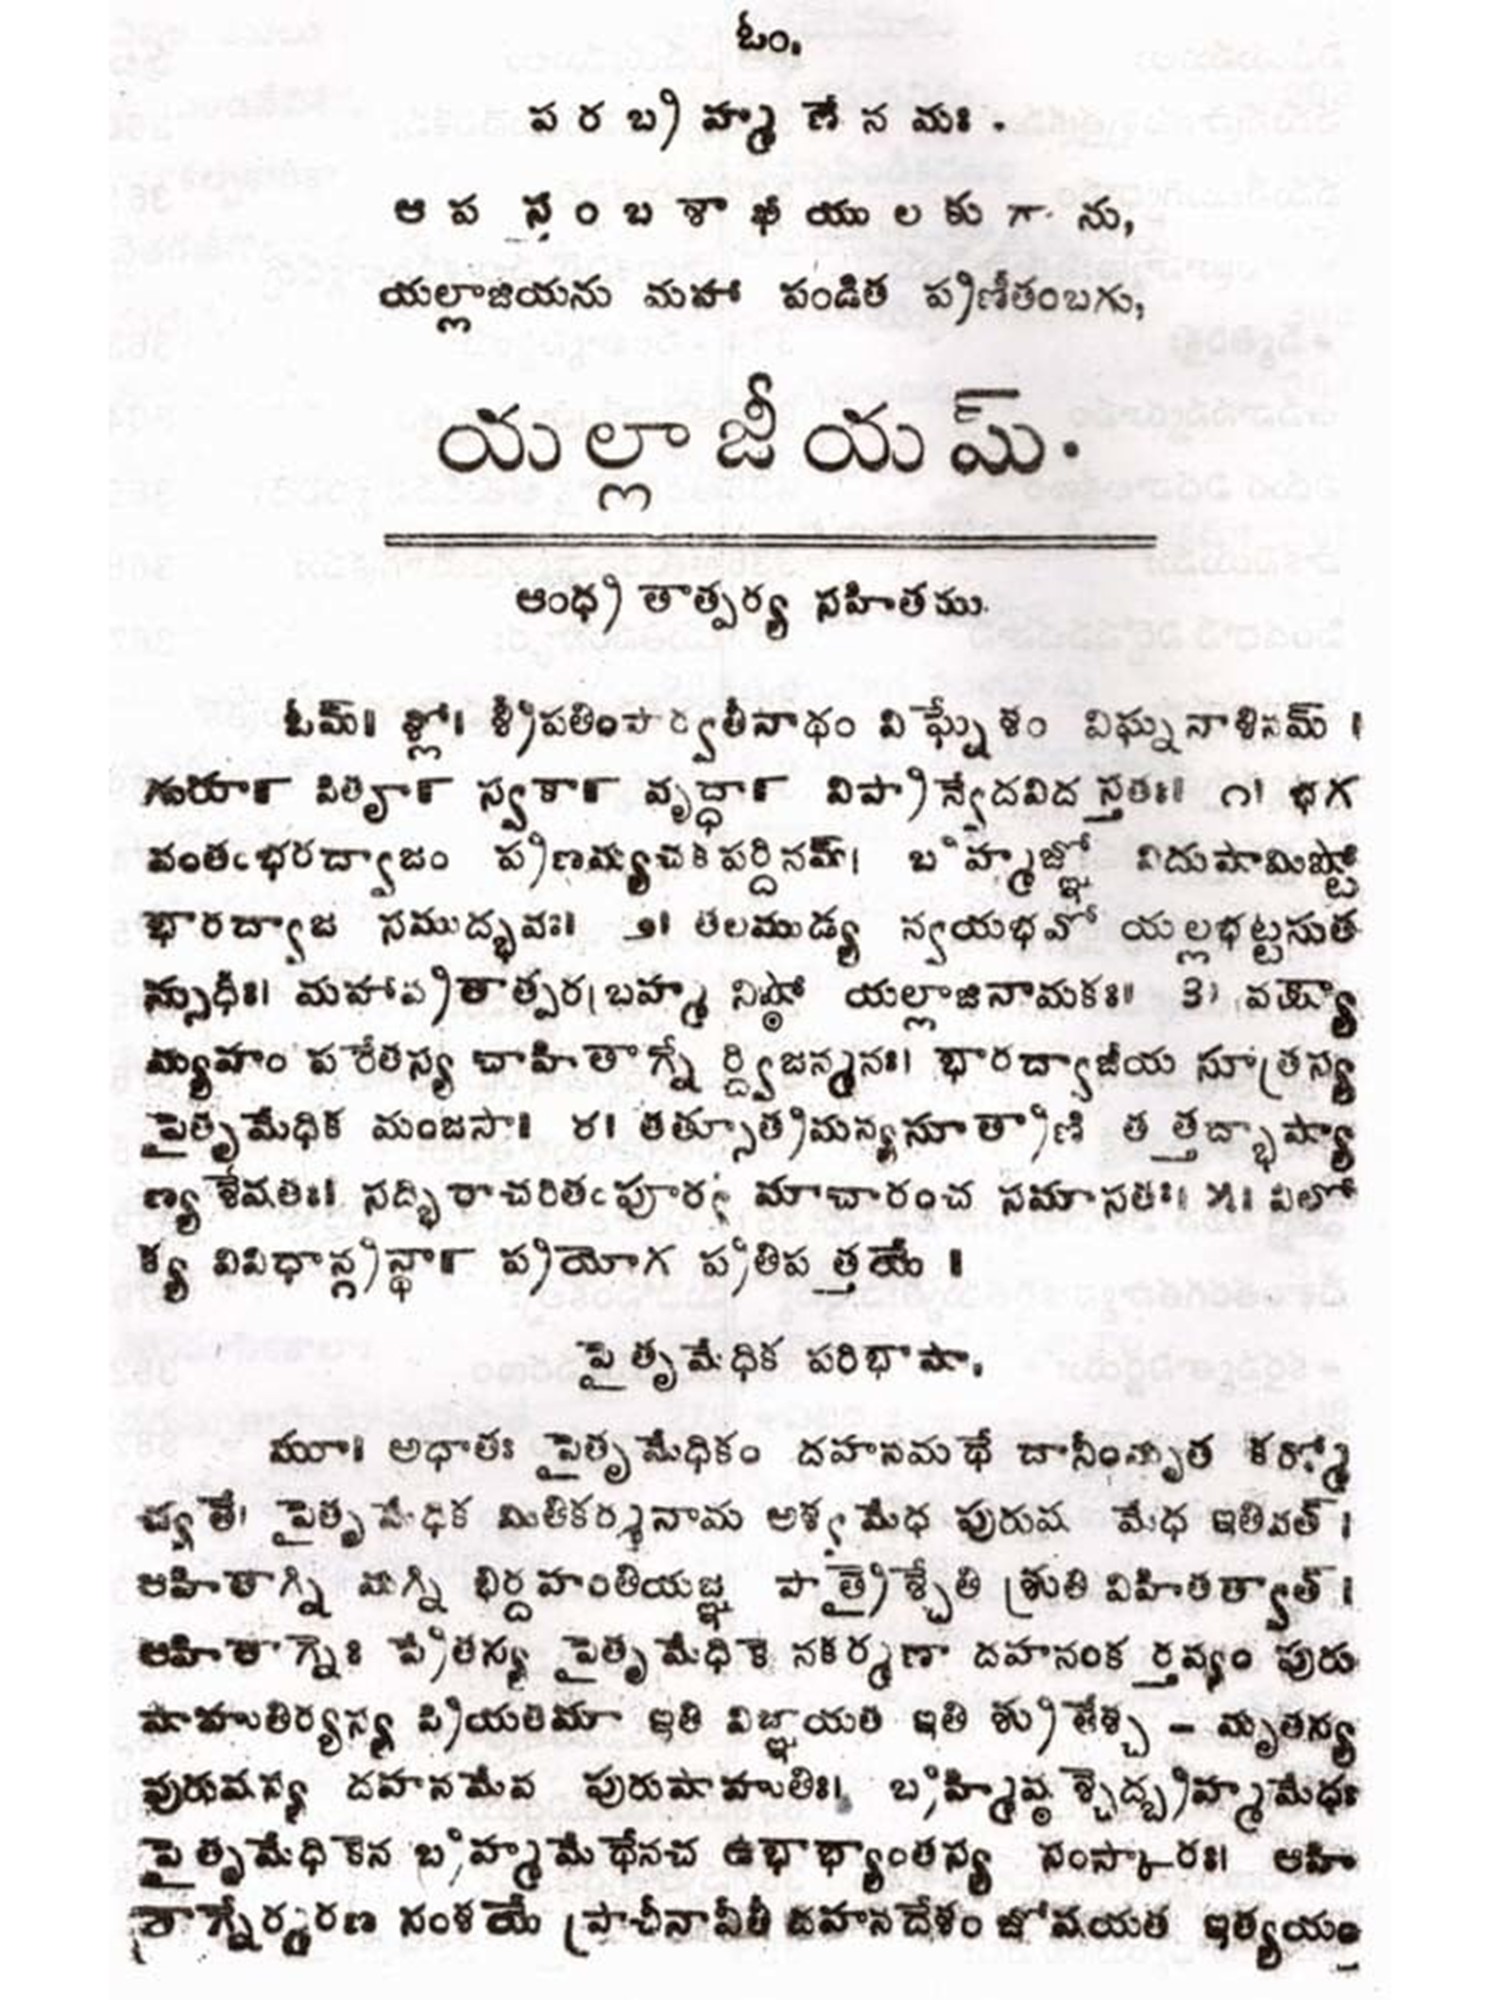 ఓం.
పరబ్రహ్మణేనమః.
ఆపస్తంబశాఖీయులకుగాను,
యల్లాజియను మహా పండిత ప్రణీతంబగు,
యల్లాజీయమ్.
ఆంధ్ర తాత్పర్య సహితము.
ఓమ్॥ శ్లో॥ శ్రీపతింపార్వతీనాథం విఘ్నేశం విఘ్ననాశినమ్ ।
గురూన్ పితౄన్ స్వకాన్ వృద్ధాన్ విప్రాన్వేదవిదస్తతః॥ ౧। భగ
వంతంభరద్వాజం ప్రణమ్యచకపర్దినమ్। బ్రహ్మజ్ఞో విదుషామిష్టో
భారద్వాజ సముద్భవః। ౨। తలముడ్య న్వయభవో యల్లభట్టసుత
స్సుధీః। మహాప్రతాత్పరబ్రహ్మ నిష్ఠో యల్లాజినామకః॥ ౩। వక్ష్యా
మ్యహం పరేతస్య చాహితాగ్నే ర్ద్విజన్మనః। భారద్వాజీయ సూత్రస్య
పైతృమేధిక మంజసా॥ ౪। తత్సూత్రమన్యసూత్రాణి తత్తద్భాష్యా
ణ్యశేషతః। సద్భిరాచరితంపూర్వ మాచారంచ సమాసతః। ౫। విలో
క్య వివిధాన్గ్రన్థాన్ ప్రయోగ ప్రతిపత్తయే ॥
పైతృమేధిక పరిభాషా.
మూ॥ అథాతః పైతృమేధికం దహనమథే దానీంమృత కర్మో
చ్యతే। పైతృమేధిక మితికర్మనామ అశ్వమేధ పురుష మేధ ఇతివత్ ।
ఆహితాగ్ని మగ్ని భిర్దహంతియజ్ఞ పాత్రైశ్చేతి శ్రుతి విహితత్వాత్ ।
ఆహితాగ్నేః ప్రేతస్య పైతృమేధికే నకర్మణా దహనంక ర్తవ్యం పురు
షాహుతిర్యస్య ప్రియతమా ఇతి విజ్ఞాయతే ఇతి శ్రుతేశ్చ - మృతస్య
పురుషస్య దహనమేవ పురుషాహుతిః। బ్రహ్మిష్ఠ శ్చేద్బ్రహ్మమేధః
పైతృమేధికేన బ్రహ్మమేధేనచ ఉభాభ్యాంతస్య సంస్కారః। ఆహి
తాగ్నేర్మరణ సంశయే ప్రాచీనావీతీ దహనదేశం జోషయత ఇత్యయం